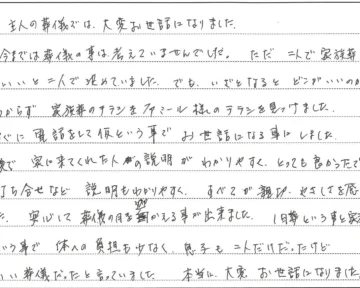 主人の葬儀では、大変お世話になりました。
今までは葬儀の事は考えていませんでした。ただ二人で家族葬
いいと二人で決めていました。でも、いざとなるとどこがいいのか
わからず 家族葬のチラシをファミール様のチラシを見つけました。
すぐに電話をして仮という事でお世話になる事にしました。
家に来てくれた人の説明がわかりやすく、とっても良かったで
打ち合せなど 説明もわかりやすく、すべてが親切、やさしさを感
た。安心して葬儀の日を迎える事が出来ました。1日葬という事と家
いう事で 体への負担も少なく、息子も二人だけだったけど
いい葬儀だったと言っていました。本当に、大変お世話になりました